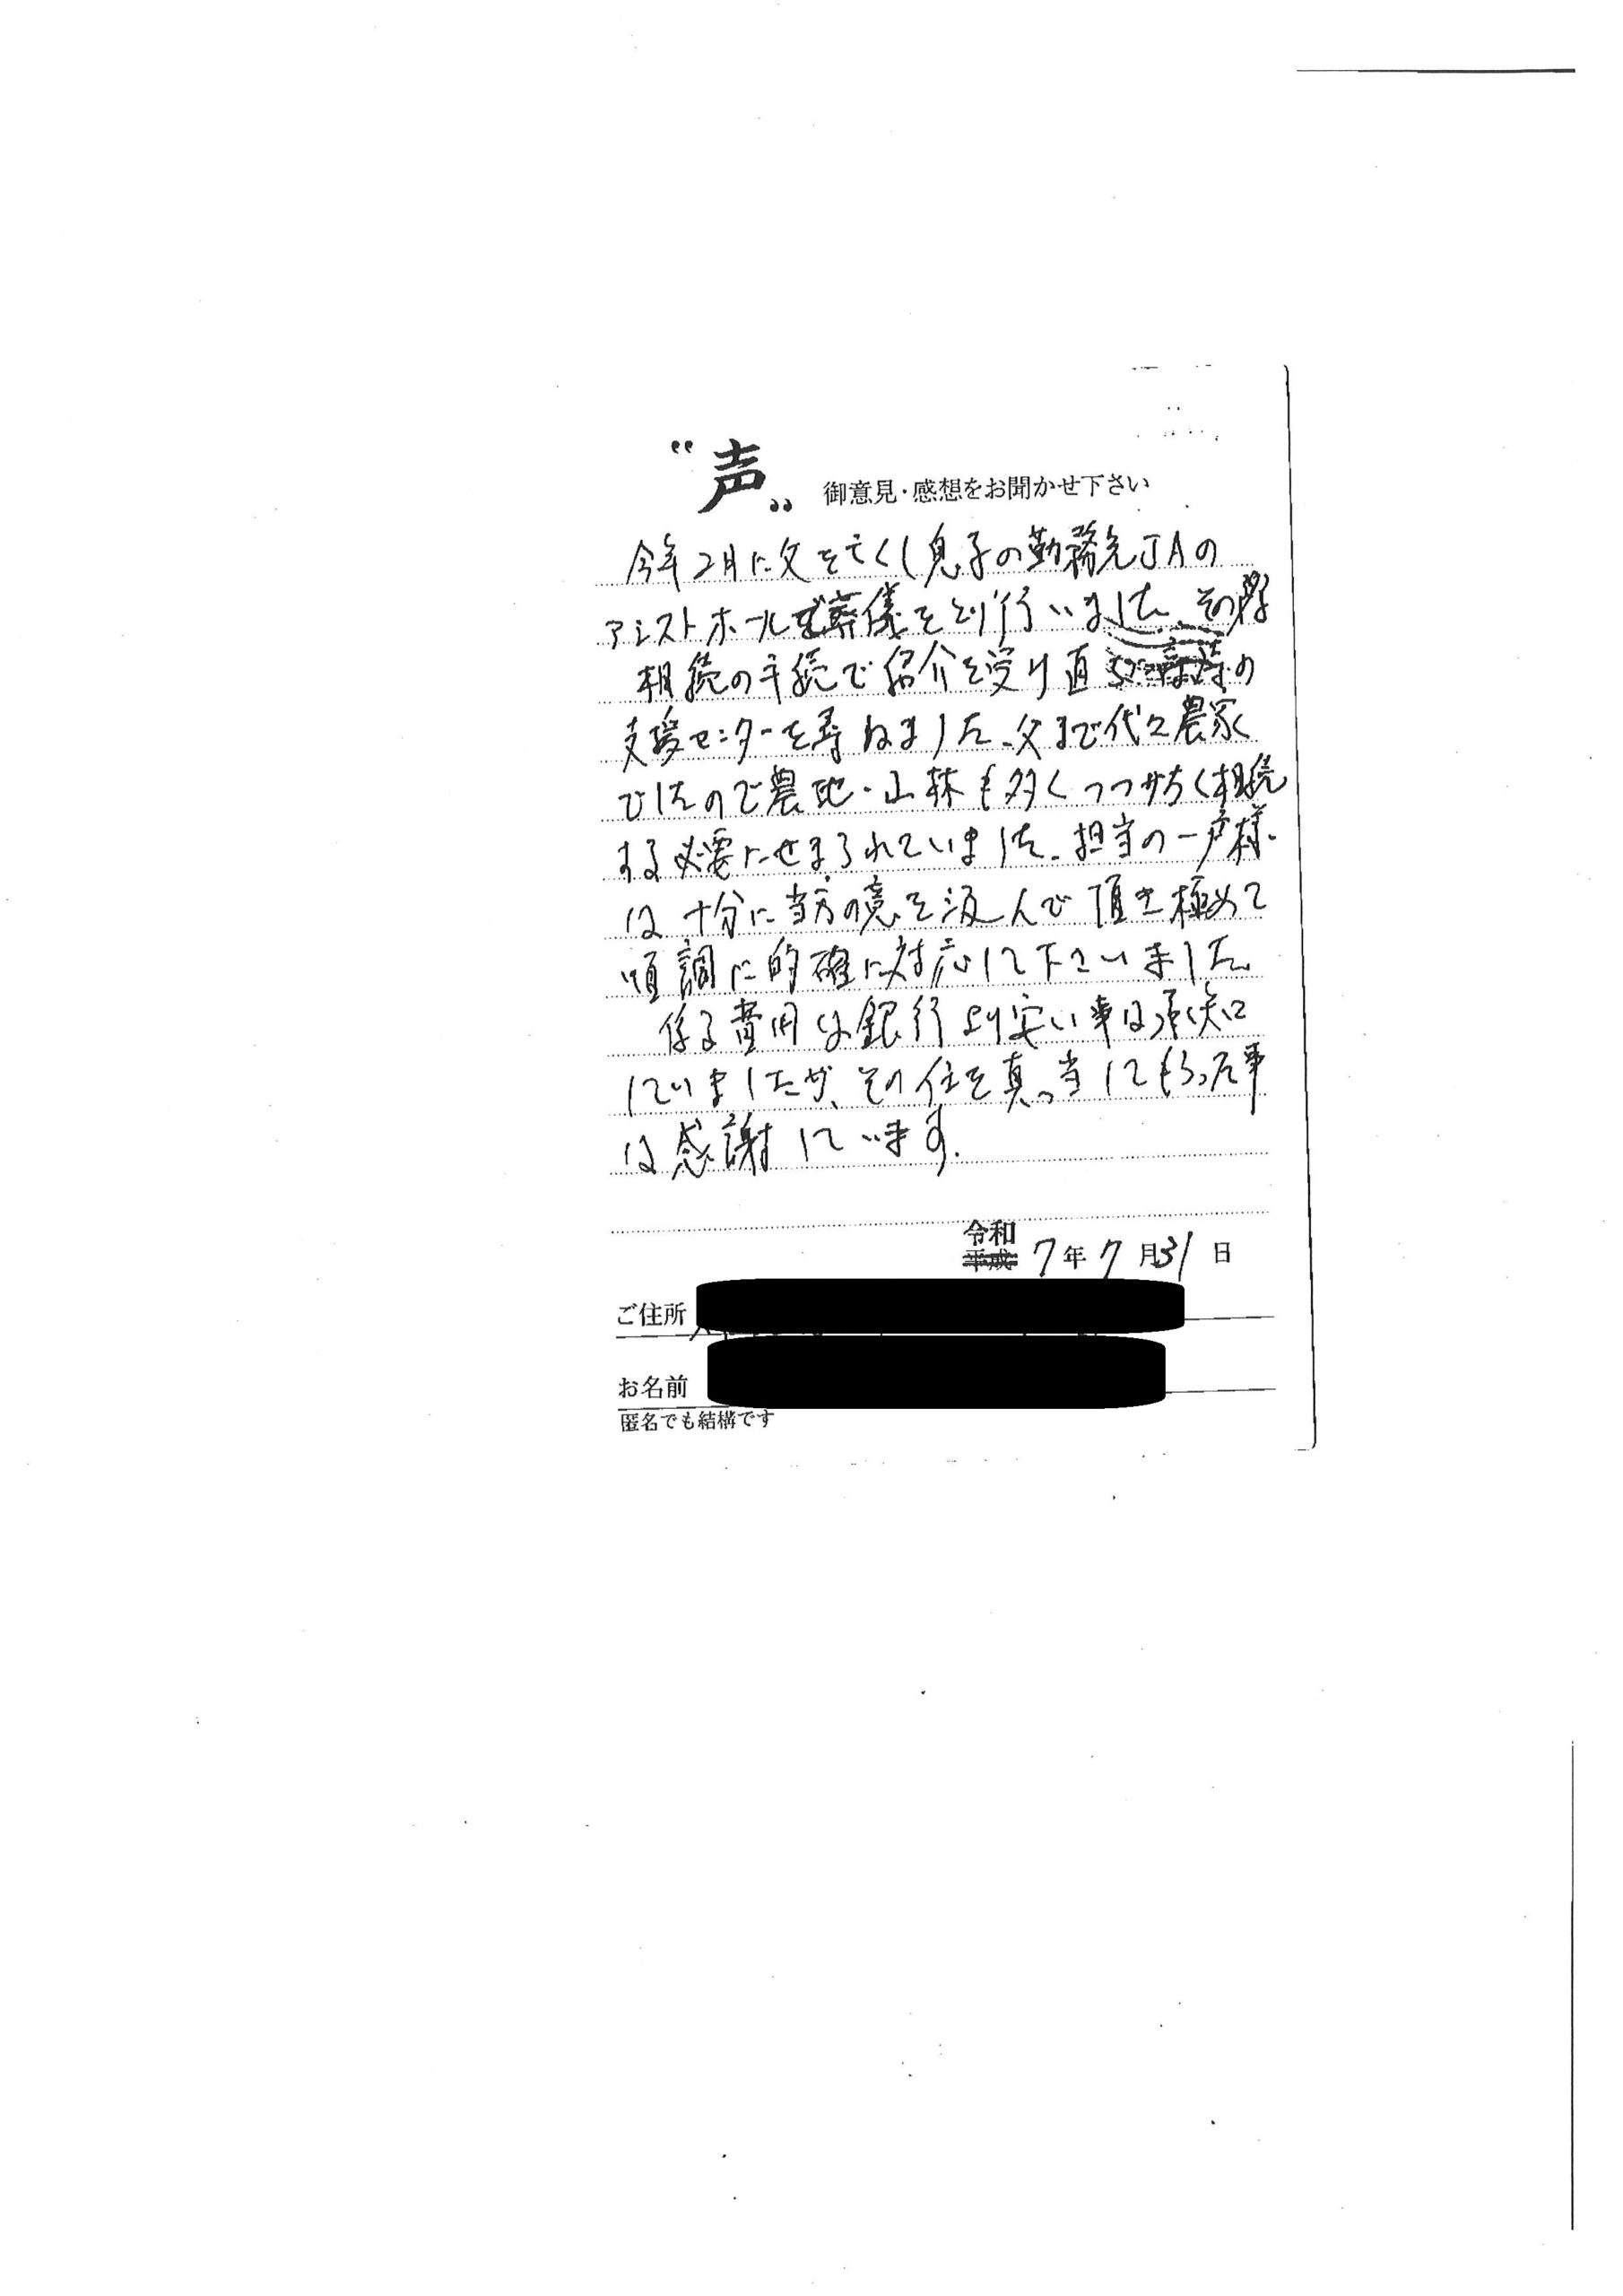 "声"
御意見・感想をお聞かせ下さい
今年2月に父を亡くし息子の勤務先JAの
アシストホールで葬儀をとり行いました。その際
相続の手続で紹介を受け直の
支援センターを尋ねました。父まで代々農家
でしたので農地・山林も多くつつがなく相続
する必要にせまられていました。担当の一戸様
は十分に当方の意を汲んで頂き極めて
順調に的確に対応して下さいました。
係る費用は銀行より安い事は承知
していましたが、その任を真っ当してもらった事
は感謝しています。
令和
平成 7年7月31日
ご住所
お名前
匿名でも結構です